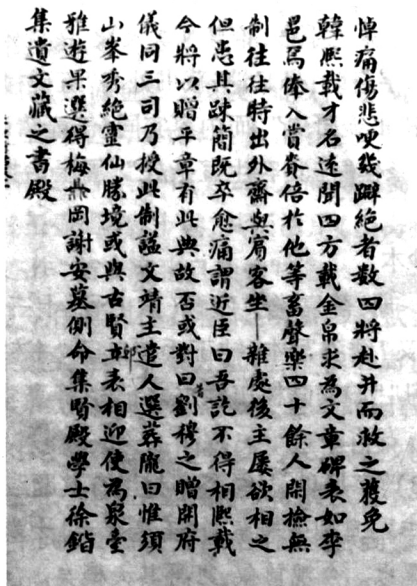 悼痛傷悲哽幾踣絕者數四將赴井而救之獲免
韓熙載才名遠聞四方載金帛求為文章碑表如李
邕焉俸入賞賚倍於他等畜聲樂四十餘人閑檢無
制往往時出外齋與賓客生雜處後主屢欲相之
但患其疎簡既卒愈痛謂近臣曰吾訖不得相熙載
今將以贈平章有此典故否或對曰昔劉穆之贈開府
儀同三司乃授此制謚文靖主遣人選葬隴曰惟須
山峯秀絕靈仙勝境或與古賢丘表相邇使為泉臺
雅遊果選得梅岡謝安墓側命集賢殿學士徐鍇
集遺文藏之書殿